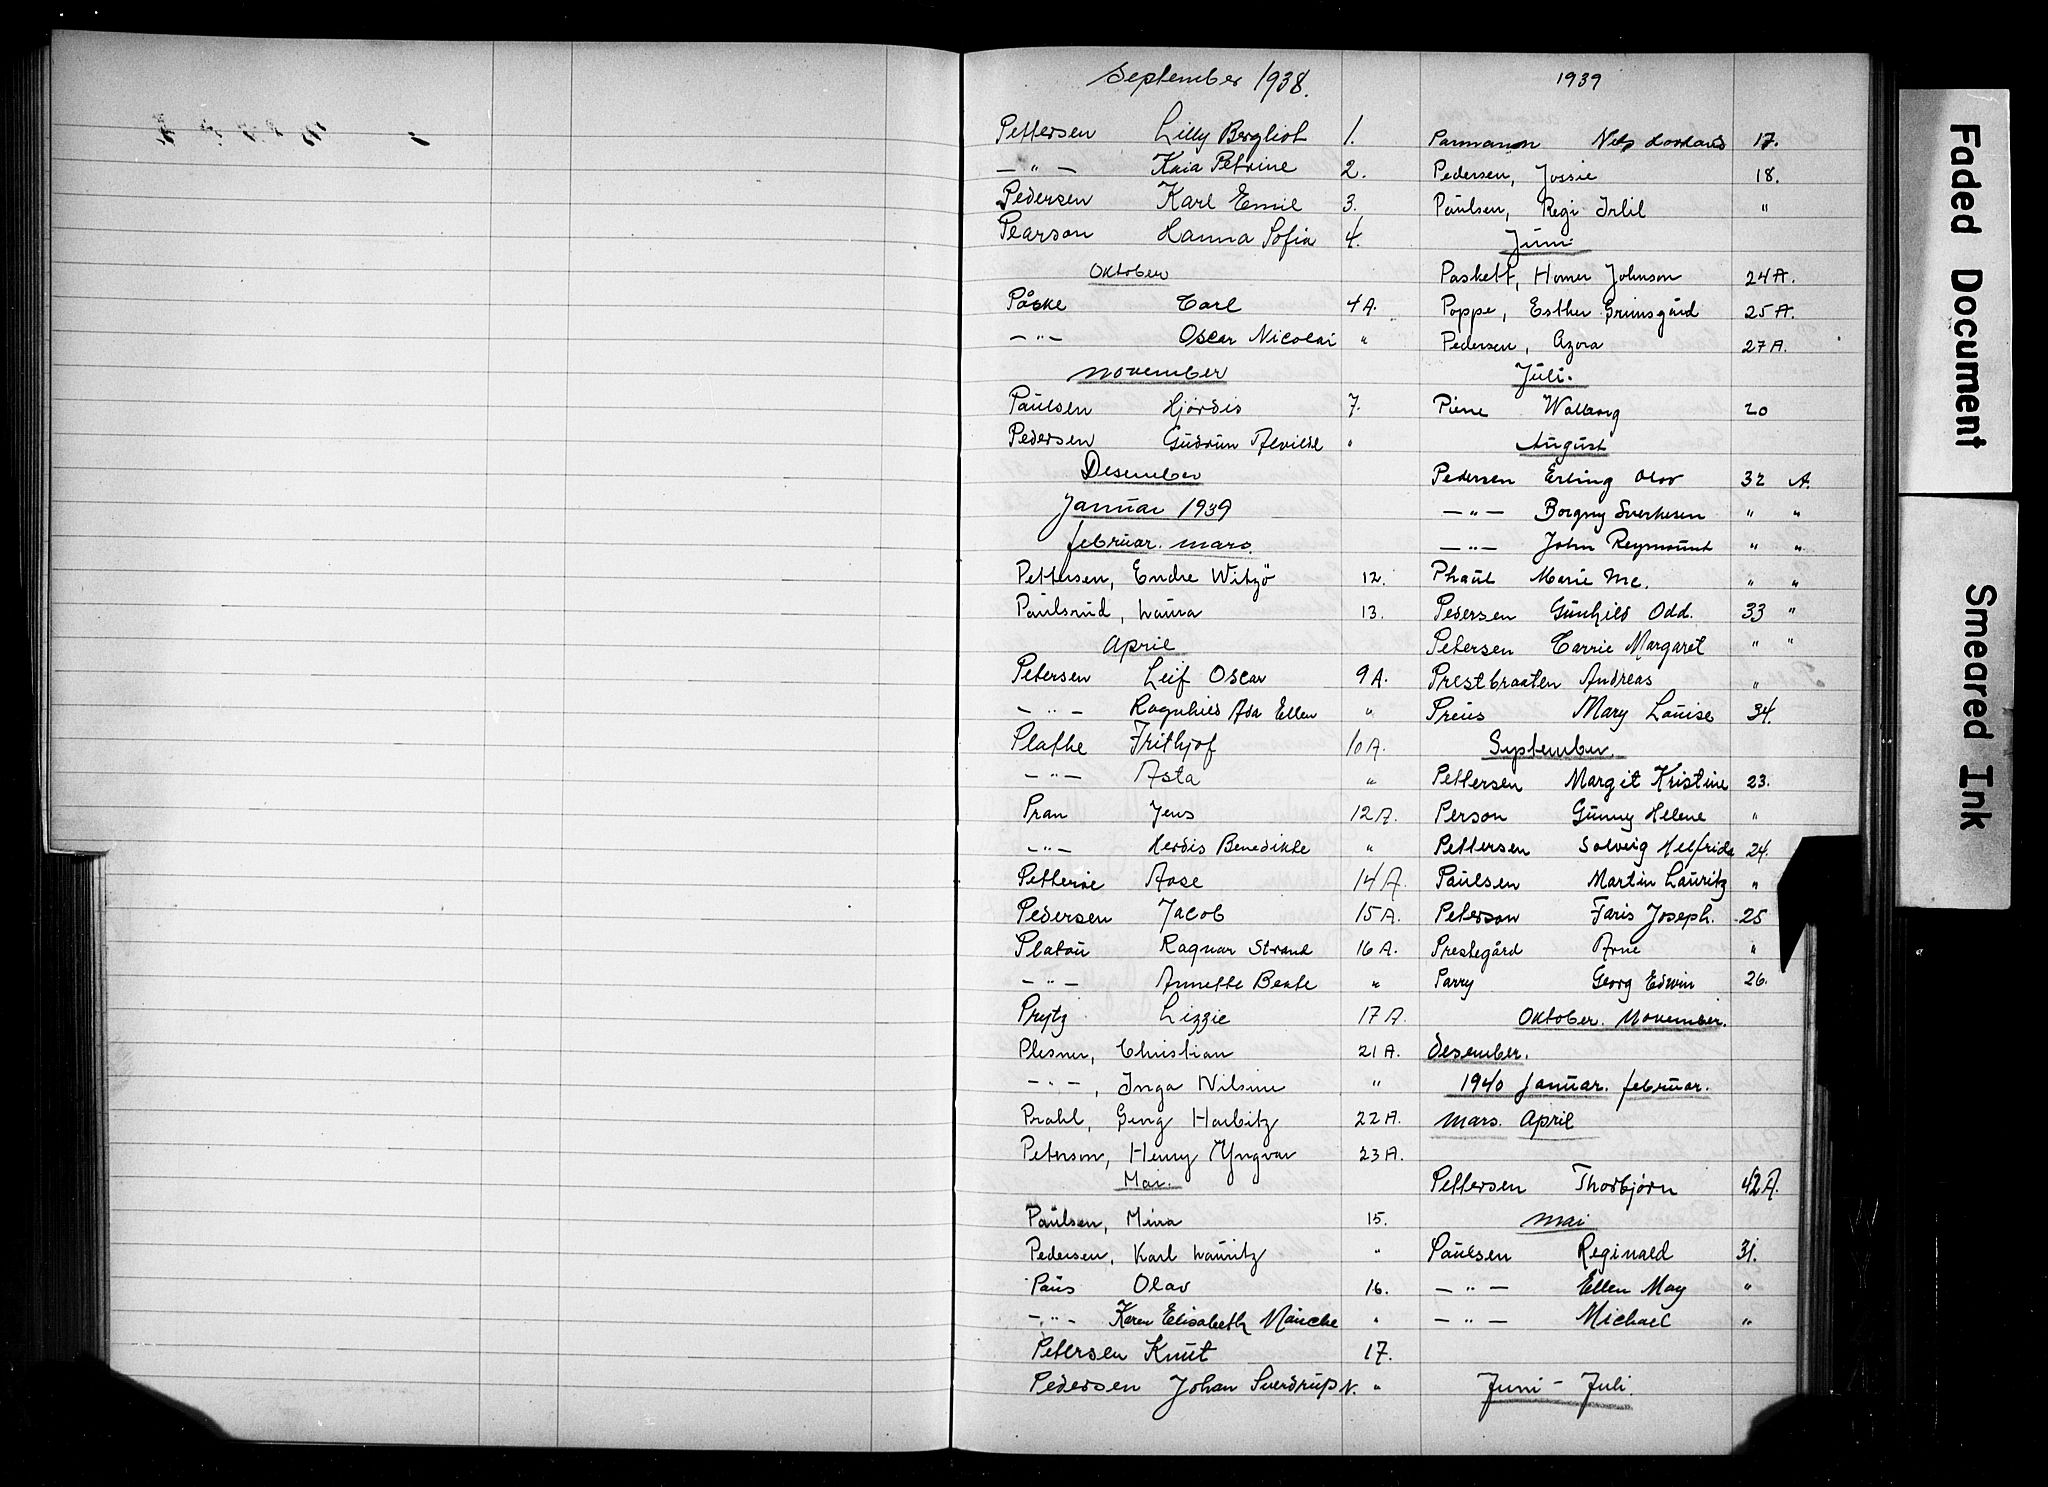 September 1938.
Pettersen Lilly Bergliot 1.
— " — Kaia Petrine 2.
Pedersen Karl Emil 3.
Pearson Hanna Sofia 4.
Oktober
Påske Carl 4 A.
— " — Oscar Nicolai "
November
Paulsen Hjørdis 7.
Pedersen Gudrun Alvilde "
Desember
Januar 1939
februar. mars.
Pettersen, Endre Witzö 12.
Paulsrud, Laura 13.
April
Petersen Leif Oscar 9 A.
— " — Ragnhild Ada Ellen "
Plathe Frithjof 10 A.
— " — Asta "
Pran Jens 12 A.
— " — Herdis Benedikte "
Petterøe Aase 14 A.
Pedersen Jacob 15 A.
Platou Ragnar Strand 16 A.
— " — Annette Beate "
Prytz Lizzie 17 A.
Plesner, Christian 21 A.
— " —, Inga Nilsine "
Prahl, Georg Harbitz 22 A.
Peterson, Henry Yngvar 23 A.
Mai.
Paulsen, Mina 15.
Pedersen, Karl Lauritz "
Paus Olav 16.
— " — Karen Elisabeth Nancke "
Petersen Knut 17.
Pedersen Johan Sverdrup N. "
1939
Parmann Nils 17.
Pedersen, Jossie 18.
Paulsen, Regi "
Juni
Paskett, Homer Johnson 24 A.
Poppe, Esther Grimsgård 25 A.
Pedersen, Azora 27 A.
Juli.
Piene Walborg 20
August
Pedersen Erling Olov 32 A.
— " — Borgny Sverhesen " "
— " — John Reymount " "
Phaul Marie Mc. " "
Pedersen Gunhild Odd. 33 "
Petersen Carrie Margaret " "
Prestbraaten Andreas "
Preus Mary Louise 34.
September.
Pettersen Margit Kristine 23.
Person Gunny Helene "
Pettersen Solveig Helfrida 24.
Paulsen Martin Lauritz "
Peterson Faris Joseph. 25
Prestegård Arne "
Parry Georg Edwin 26.
Oktober. November.
desember.
1940 Januar. februar.
mars. April
Pettersen Thorbjørn 42 A.
mai
Paulsen Reginald 31.
— " — Ellen May "
— " — Michael "
Juni - Juli.
Faded Document
Smeared Ink